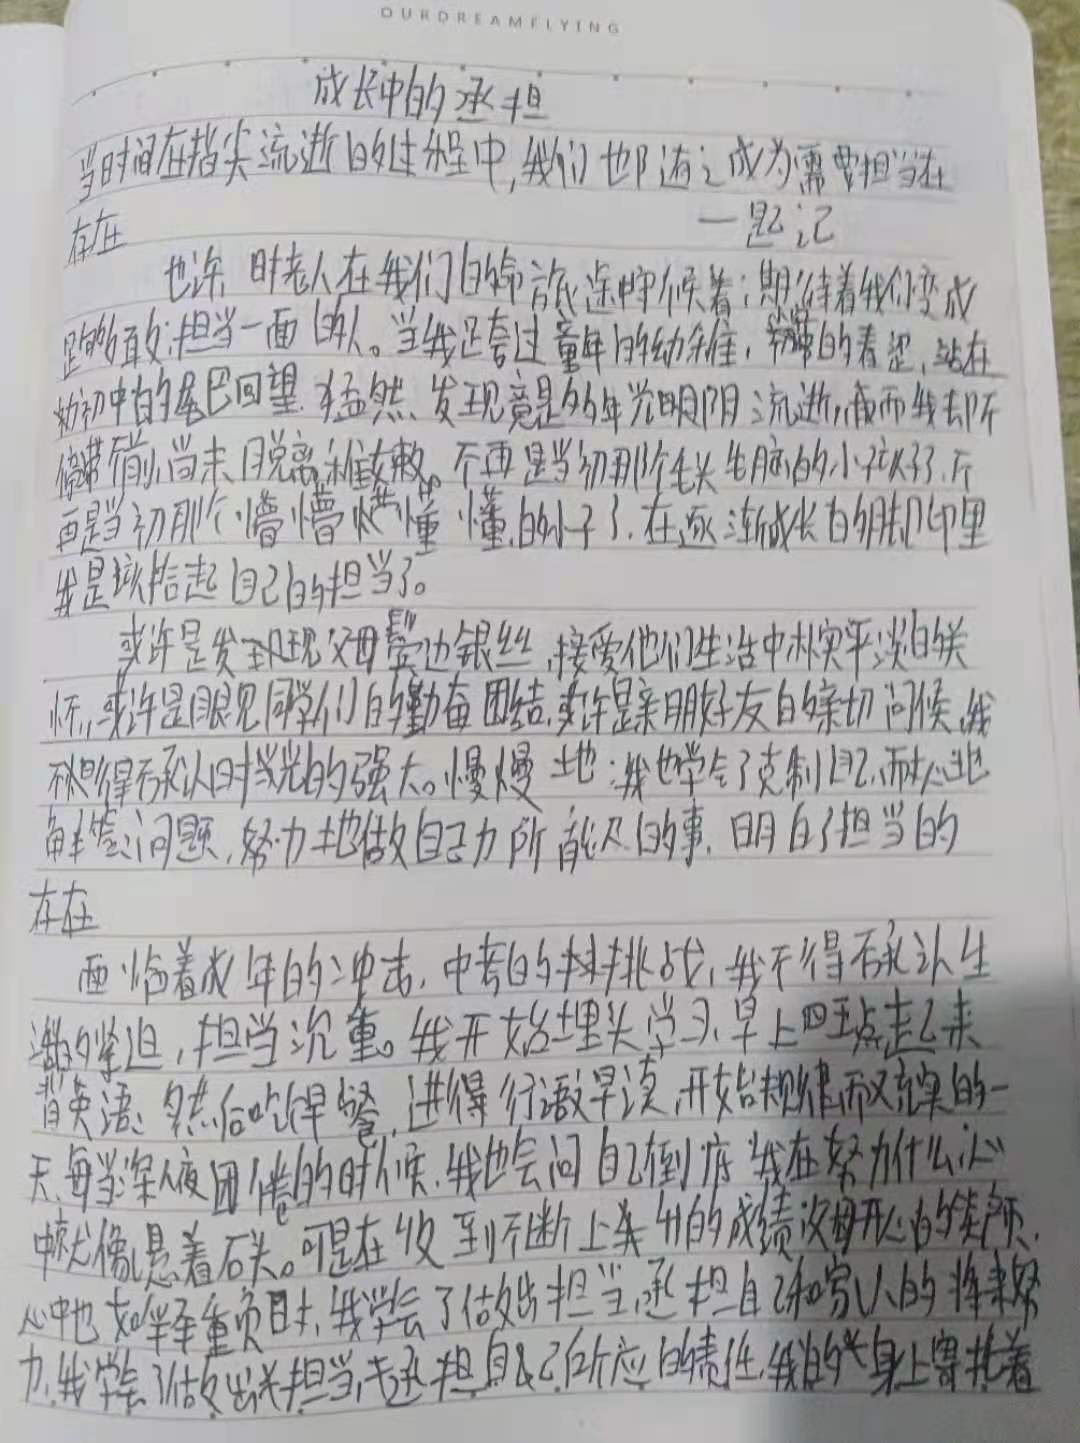 OURDREAMFLYING
成长中的承担
当时间在指尖流逝的过程中,我们也随之成为需要担当在
存在
一题记
也许,时老人在我们的命旅途中守候着;期待着我们变成
担当一面的人。当我迈过童年的幼稚,的羞涩,站在
初中的尾巴回望,猛然发现竟是多年光阴流逝,而我却
停滞不前,尚未脱离稚嫩。不再是当初那个毛头的小孩子了,不
再是当初那个懵懵懂懂的小子了,在逐渐成长的脚印里
我是该拾起自己的担当了。
或许是发现父母鬓边银丝,接受他们生活中朴实平淡的关
怀,或许是眼见同学们的勤奋团结,或许是亲朋好友的亲切问候,我
不得不承认时光的强大。慢慢地:我也学会了克制自己,耐心地
解答问题,努力地做自己力所能及的事,明白了担当的
存在
面临着成年的冲击,中考的挑战,我不得不承认生
的紧迫,担当沉重。我开始埋头学习,早上四五点起来
背英语,然后吃早餐,进行语文早读,开始规律而又充实的一
天,每当深夜困倦的时候,我也会问自己到底我在努力什么,心
中就像悬着石头。可是在收到不断上升的成绩父母开心的笑颜,
心中也如释重负时,我学会了做出担当,承担自己和家人的将来努
力,我学会了做出担当,去承担自己所应的责任,我的身上寄托着